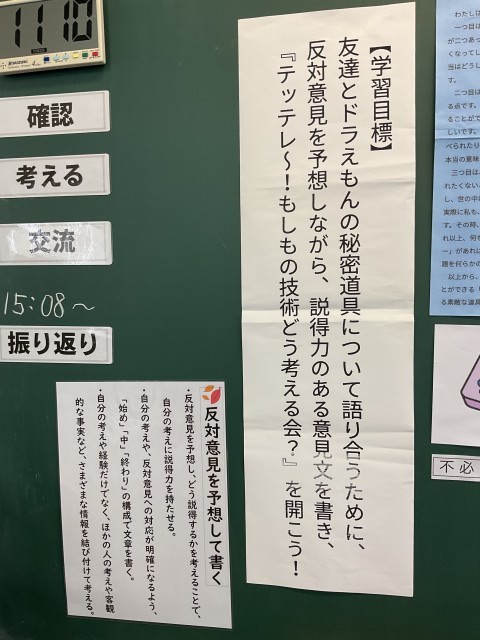 11 10
確認
考える
交流
15:08〜
振り返り
【学習目標】
友達とドラえもんの秘密道具について語り合うために、
反対意見を予想しながら、説得力のある意見文を書き、
『テッテレ〜!もしもの技術どう考える会?』を開こう!
反対意見を予想して書く
・反対意見を予想し、どう説得するかを考えることで、
自分の考えに説得力を持たせる。
・自分の考えや、反対意見への対応が明確になるよう、
「始め」「中」「終わり」の構成で文章を書く。
・自分の考えや経験だけでなく、ほかの人の考えや客観
的な事実など、さまざまな情報を結び付けて考える。
わたしは
一つ目は
が二つあっ
くなってし
当はどうし
す。
二つ目は
る点です。
ることがで
しいです。
べられたり
本当の意味
三つ目は
れたくない
し、世の中
実際に私も、
す。その時、
れ以上、何
ー」があれば
題を何らかの
以上から、
とができる「
る素敵な道具
不必